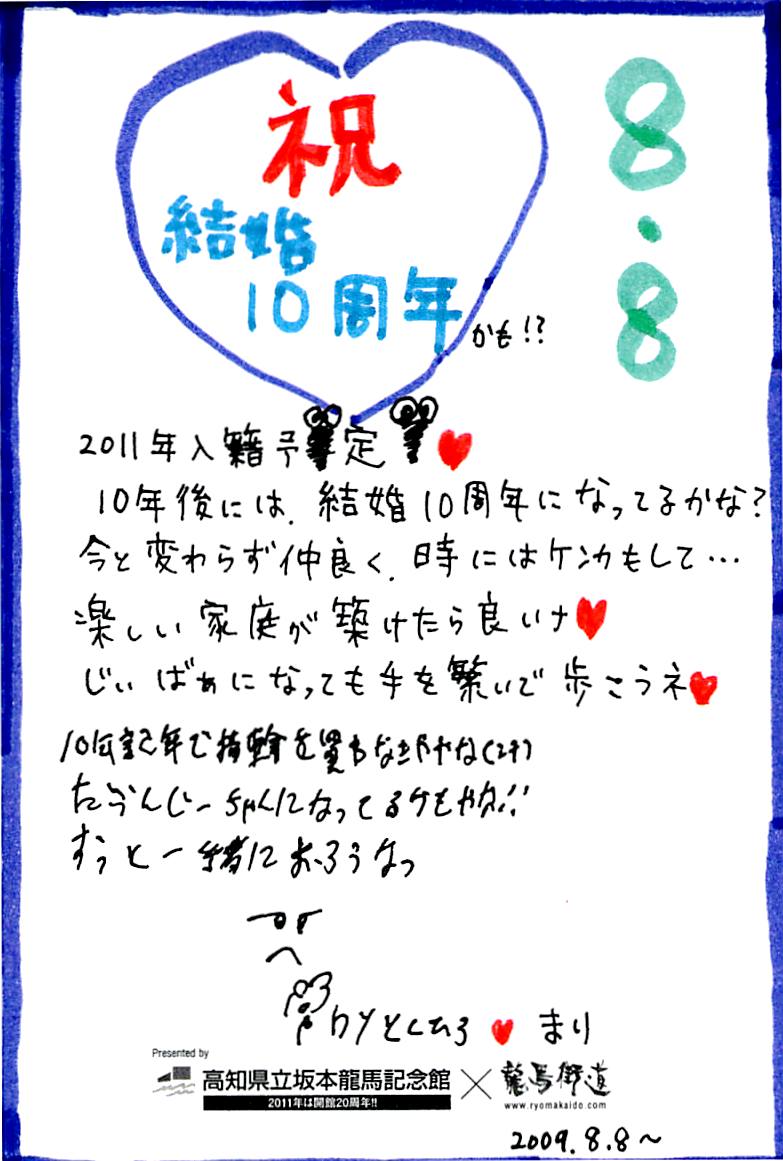 祝
8.8
結婚
10周年かも!?
2011年入籍予定
10年後には、結婚10周年になってるかな?
今と変わらず仲良く、時にはケンカもして…
楽しい家庭が築けたら良いナ
じぃばぁになっても手を繋いで歩こうネ
10年で指輪を買
じーちゃんになってるケド
ずっと一緒におろうなっ
by まり
Presented by
高知県立坂本龍馬記念館×龍馬街道
2011年は開館20周年!!
www.ryomakaido.com
2009.8.8~